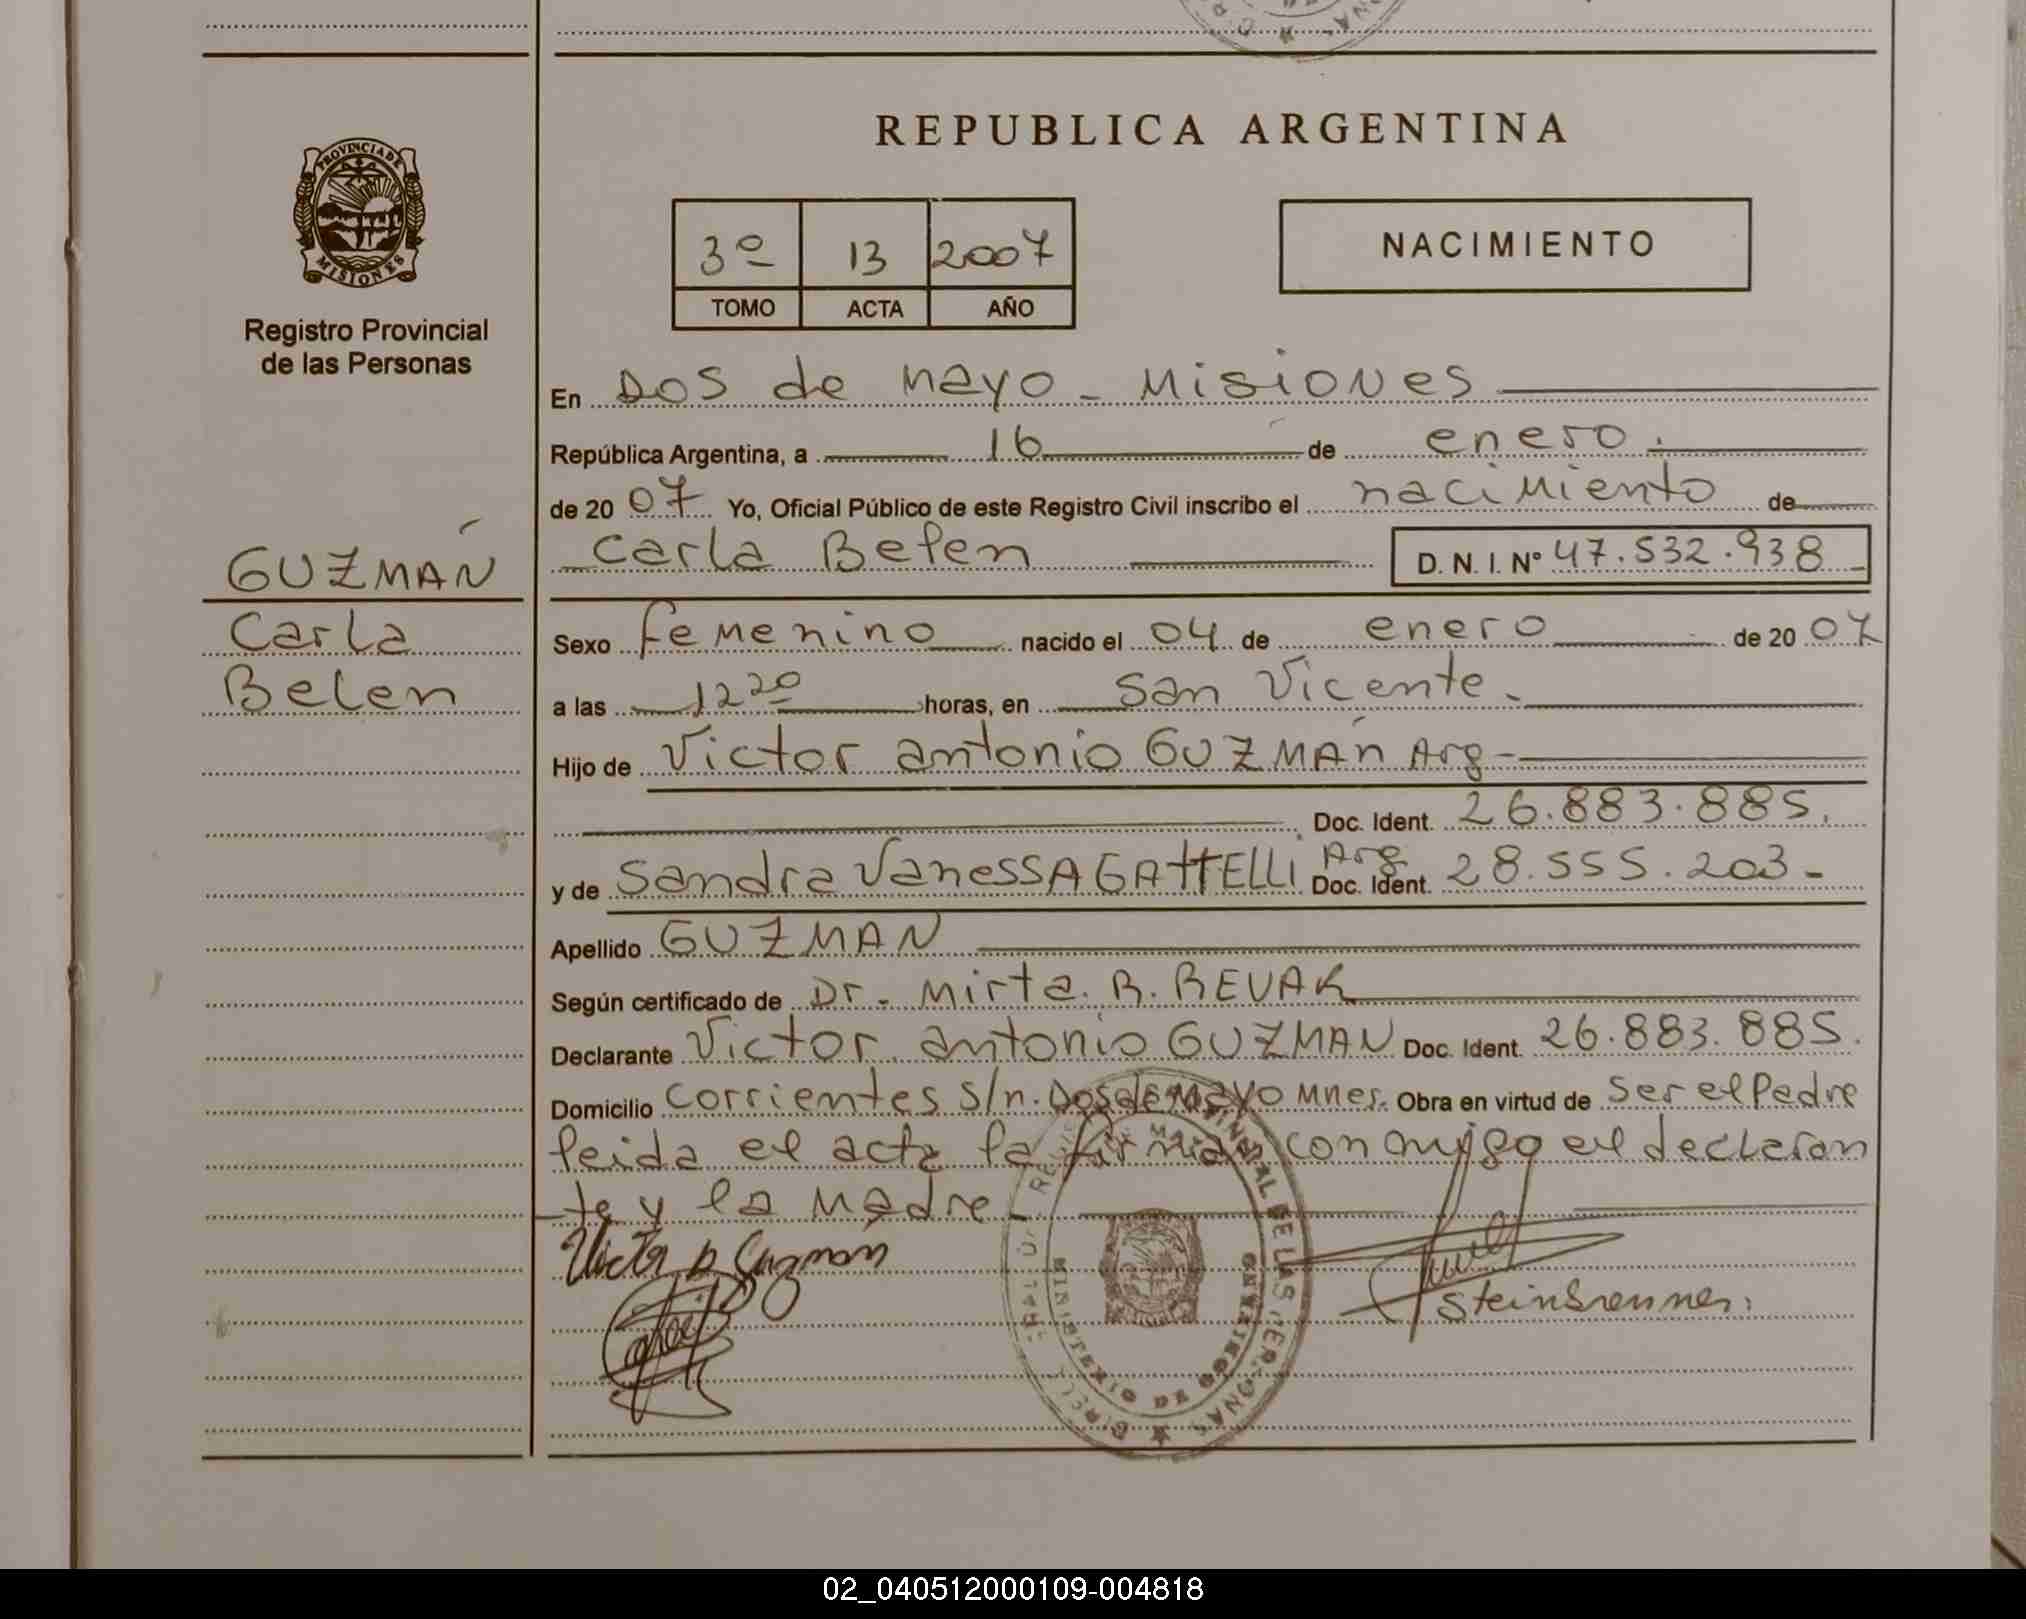 REPUBLICA ARGENTINA
PROVINCIA DE MISIONES
Registro Provincial
de las Personas
3º 13 2007
TOMO ACTA AÑO
NACIMIENTO
GUZMÁN
Carla
Belen
En Dos de Mayo - Misiones
República Argentina, a 16 de enero.
de 20 07 Yo, Oficial Público de este Registro Civil inscribo el nacimiento de
Carla Belen D. N. I. Nº 47.532.938
Sexo femenino nacido el 04 de enero de 20 07
a las 12 20 horas, en San Vicente.
Hijo de Victor antonio GUZMÁN Arg-
Doc. Ident. 26.883.885.
y de Sandra Vanessa GATTELLI Arg Doc. Ident. 28.555.203-
Apellido GUZMAN
Según certificado de Dr. Mirta. R. REVAK
Declarante Victor antonio GUZMAN Doc. Ident. 26.883.885.
Domicilio Corrientes s/n. Dos de Mayo Mnes. Obra en virtud de Ser el Padre
leida el acta la firman con migo el declaran
-te y la Madre
Victor A Guzmán
Steinbrenner
02_040512000109-004818